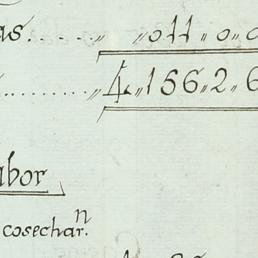 as. . . . . „ „ 011 „ 0 „
. . . . . . . . . „ 4 „ 156 „ 2 „ 6
abor
cosechar.n